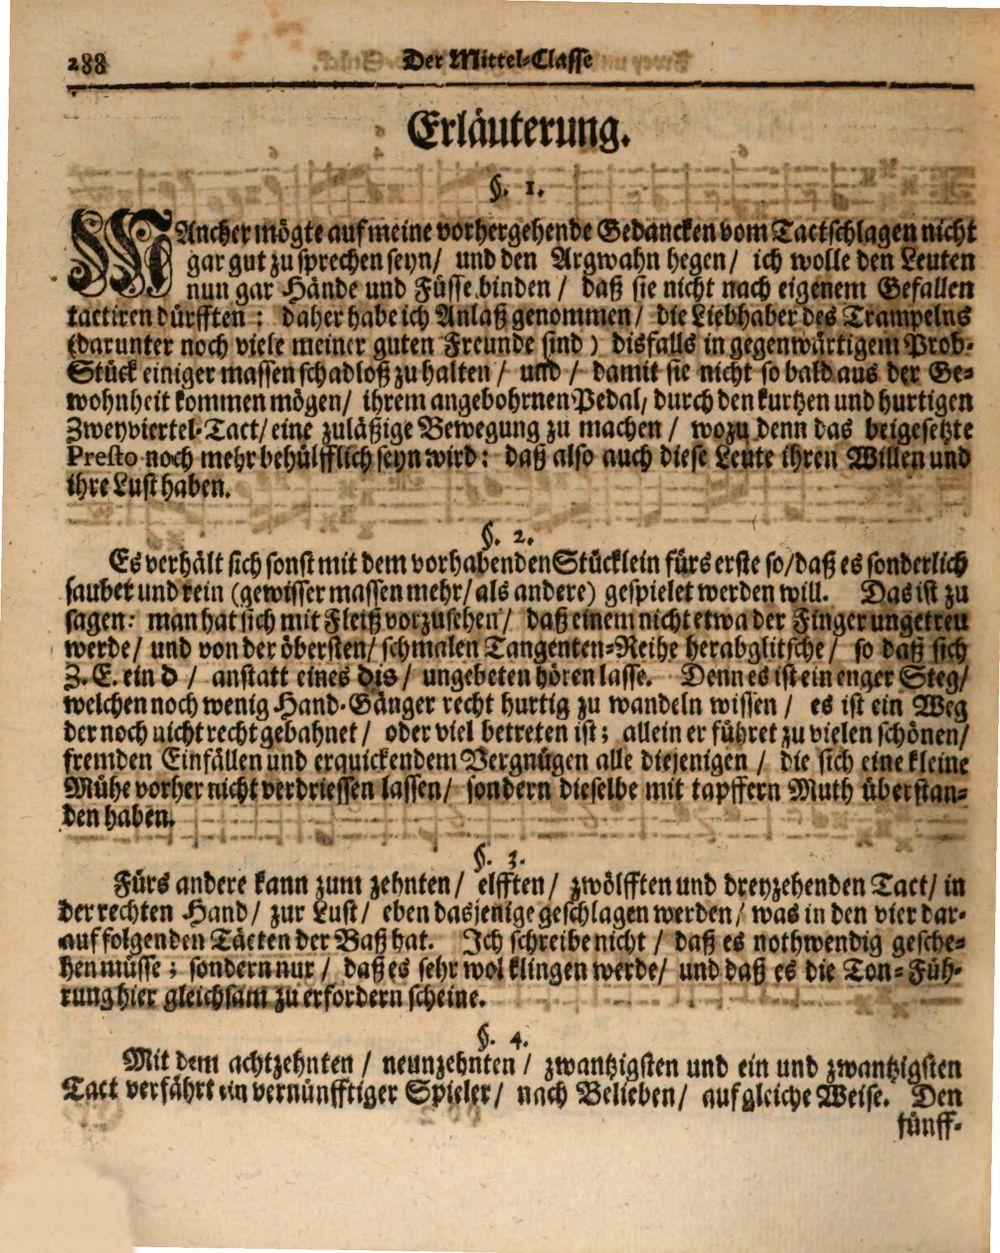 288 Der Mittel-Classe
Erläuterung.
§. 1.
MAncher mögte auf meine vorhergehende Gedancken vom Tactschlagen nicht
gar gut zu sprechen seyn/ und den Argwahn hegen/ ich wolle den Leuten
nun gar Hände und Füsse binden / daß sie nicht nach eigenem Gefallen
tactiren dürfften : daher habe ich Anlaß genommen/ die Liebhaber des Trampelns
(darunter noch viele meiner guten Freunde sind) disfalls in gegenwärtigem Prob-
Stück einiger massen schadloß zu halten / und / damit sie nicht so bald aus der Ge-
wohnheit kommen mögen/ ihrem angebohrnen Pedal, durch den kurtzen und hurtigen
Zweyviertel-Tact/ eine zuläßige Bewegung zu machen / wozu denn das beigesetzte
Presto noch mehr behülfflich seyn wird: daß also auch diese Leute ihren Willen und
ihre Lust haben.
§. 2.
Es verhält sich sonst mit dem vorhabenden Stücklein fürs erste so/ daß es sonderlich
sauber und rein (gewisser massen mehr/ als andere) gespielet werden will. Das ist zu
sagen: man hat sich mit Fleiß vorzusehen/ daß einem nicht etwa der Finger ungetreu
werde/ und von der öbersten/ schmalen Tangenten-Reihe herabglitsche/ so daß sich
Z. E. ein d / anstatt eines dis/ ungebeten hören lasse. Denn es ist ein enger Steg/
welchen noch wenig Hand-Gänger recht hurtig zu wandeln wissen / es ist ein Weg
der noch nicht recht gebahnet/ oder viel betreten ist; allein er führet zu vielen schönen/
fremden Einfällen und erquickendem Vergnügen alle diejenigen / die sich eine kleine
Mühe vorher nicht verdriessen lassen/ sondern dieselbe mit tapffern Muth überstan-
den haben.
§. 3.
Fürs andere kann zum zehnten/ elfften/ zwölfften und dreyzehenden Tact/ in
der rechten Hand/ zur Lust/ eben dasjenige geschlagen werden/ was in den vier dar-
auf folgenden Täcten der Baß hat. Ich schreibe nicht / daß es nothwendig gesche-
hen müsse; sondern nur / daß es sehr wol klingen werde/ und daß es die Ton-Füh-
rung hier gleichsam zu erfordern scheine.
§. 4.
Mit dem achtzehnten / neunzehnten / zwantzigsten und ein und zwantzigsten
Tact verfährt ein vernünfftiger Spieler/ nach Belieben/ auf gleiche Weise. Den
fünff-